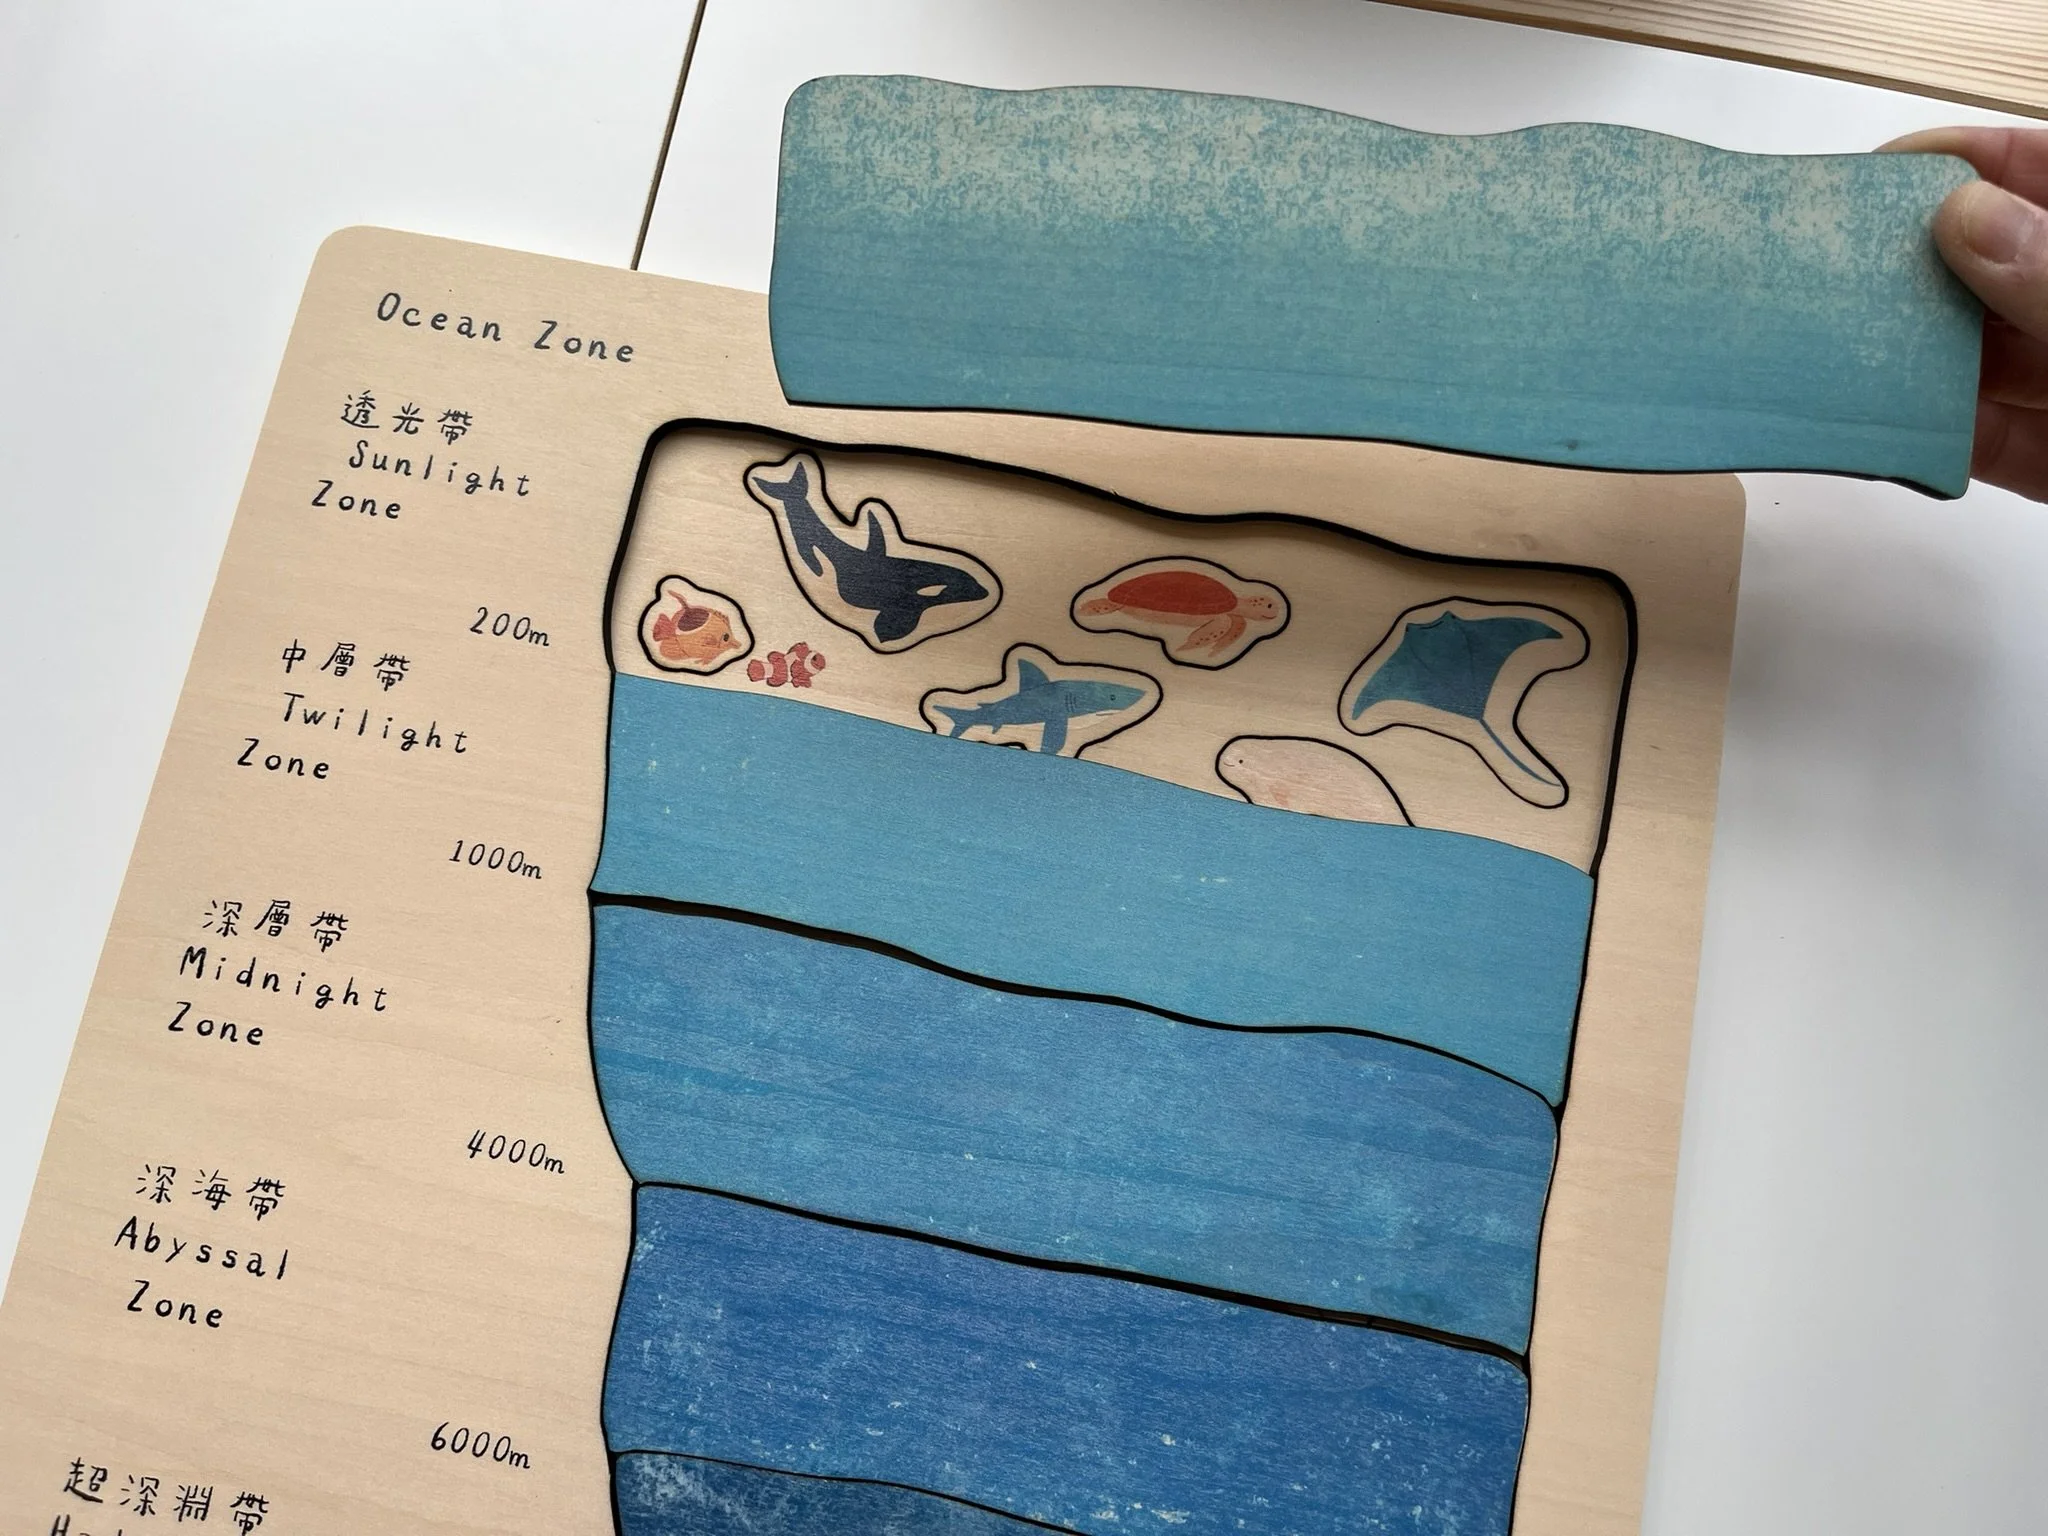 Ocean Zone
透光帶
Sunlight
Zone
200m
中層帶
Twilight
Zone
1000m
深層帶
Midnight
Zone
4000m
深海帶
Abyssal
Zone
6000m
超深淵帶